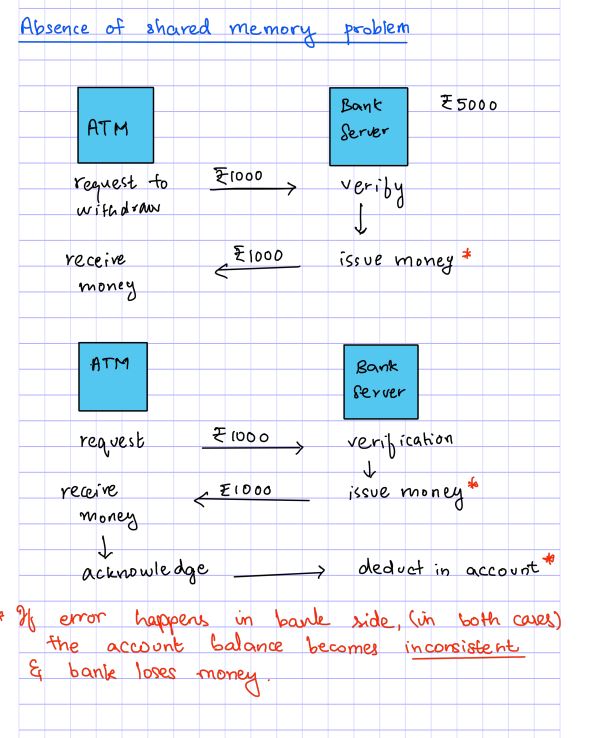 Absence of shared memory problem
ATM
Bank
Server
₹5000
request to
withdraw
₹1000
verify
receive
money
₹1000
issue money *
ATM
Bank
Server
request
₹1000
verification
receive
money
₹1000
issue money *
acknowledge
deduct in account *
* If error happens in bank side, (in both cases)
the account balance becomes inconsistent
& bank loses money.